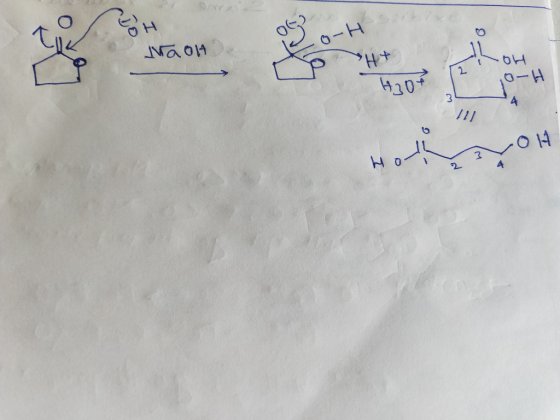 O
(-)
OH
NaOH
O(-)
O-H
H+
H3O+
O
1
OH
O-H
2
3
4
///
O
H O
1
2
3
4
OH